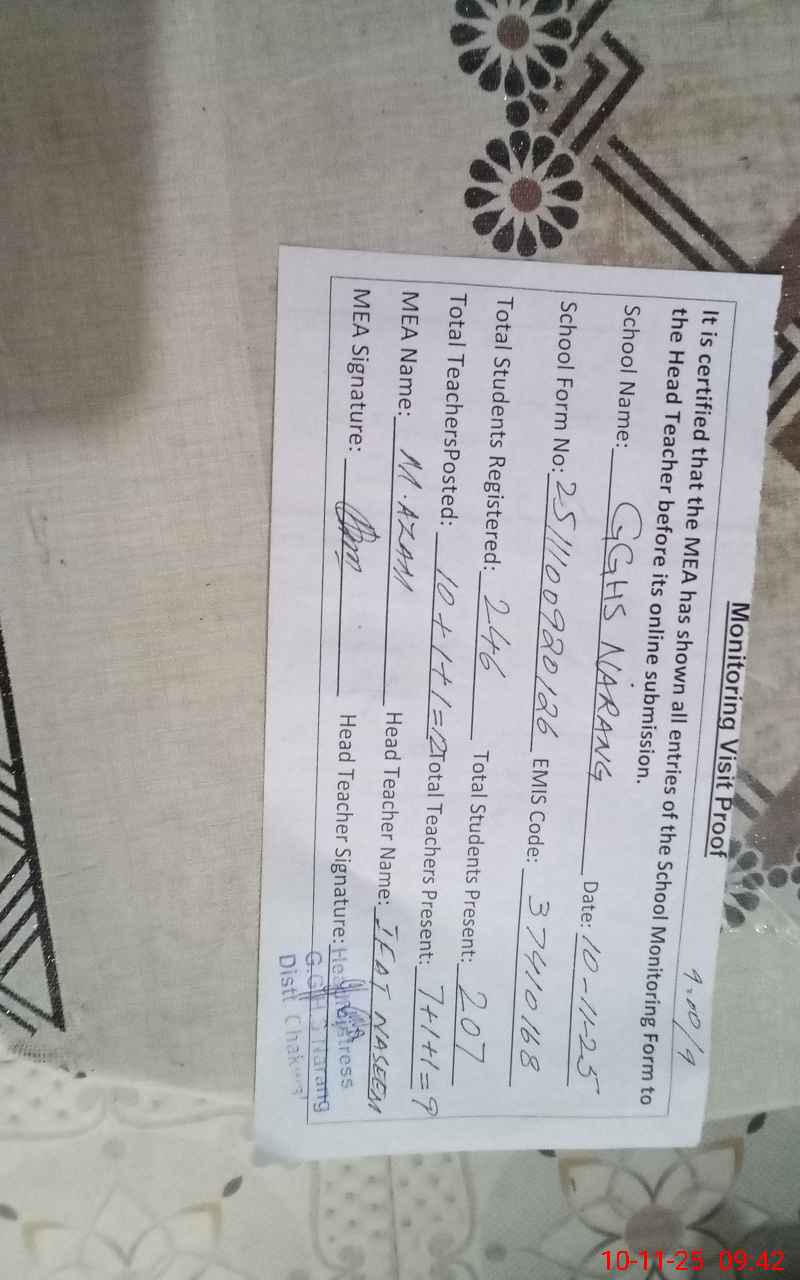 Monitoring Visit Proof
9:00/9
It is certified that the MEA has shown all entries of the School Monitoring Form to
the Head Teacher before its online submission.
School Name: GGHS NARANG Date: 10-11-25
School Form No: 2511100920126 EMIS Code: 37410168
Total Students Registered: 246 Total Students Present: 207
Total TeachersPosted: 10+1+1=12 Total Teachers Present: 7+1+1=9
MEA Name: M.AZAM Head Teacher Name: IFAT NASEEM
MEA Signature: Head Teacher Signature: Headmistress
G.G.H.S Narang
Distt Chakwal
10-11-25 09:42